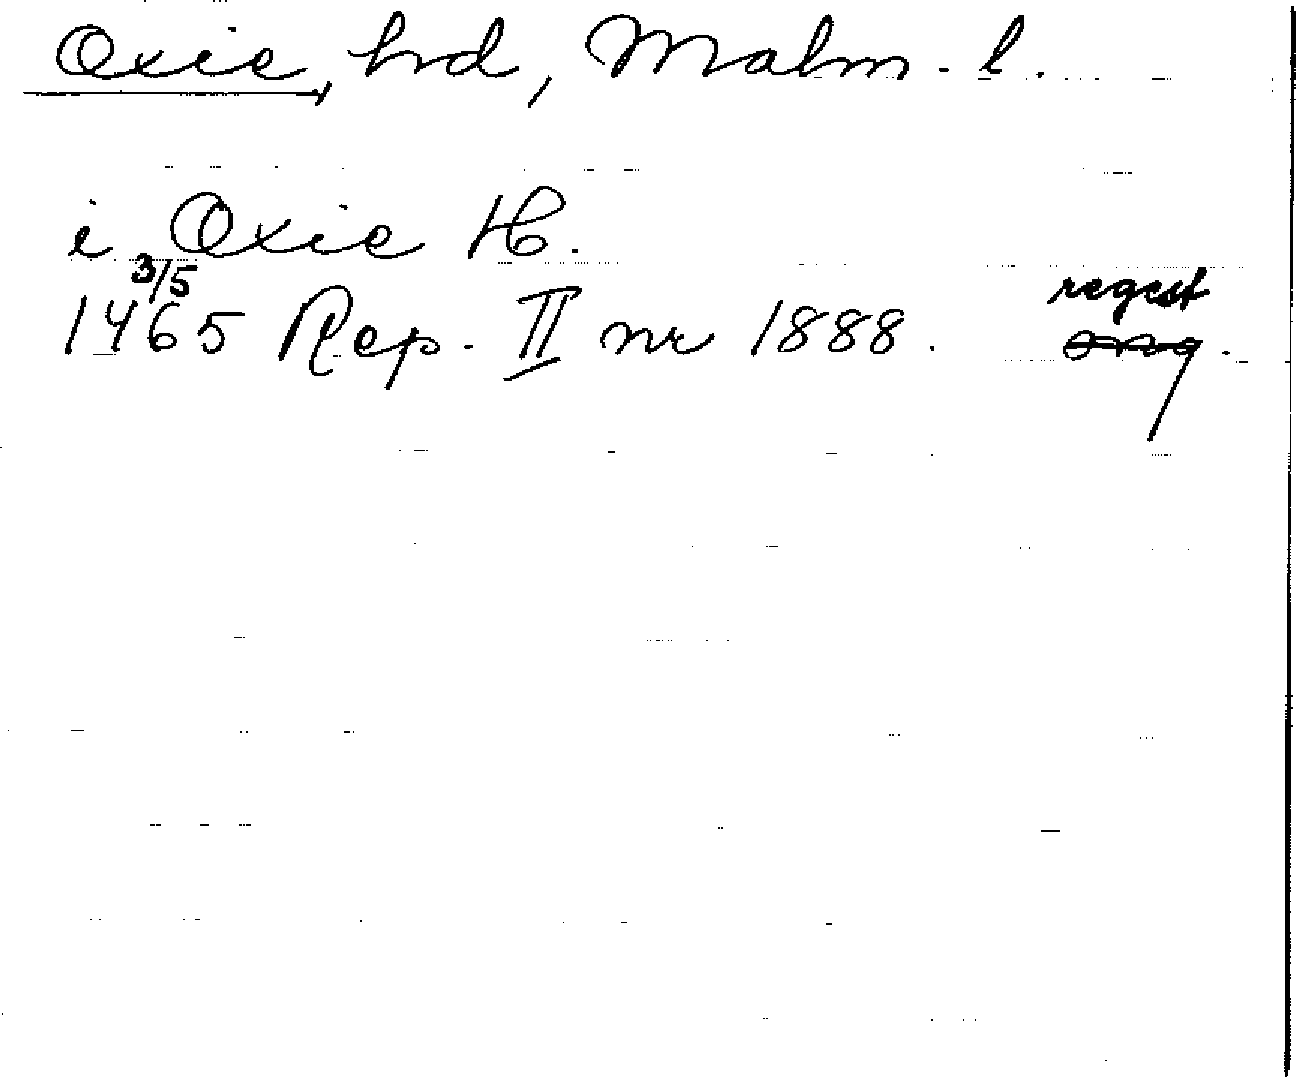 Oxie, hd, Malm. l.
i Oxie H.
3/5
1465 Rep. II nr 1888. regest